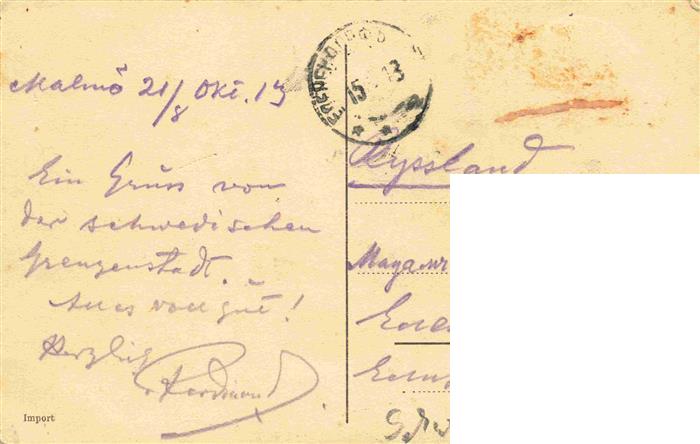 Malmö 21/8 Okt. 13
Ein Gruss von
der schwedischen
Grenzenstadt.
Alles voll gut!
Herzlich
Ferdinand
Import
ЕЛЕНЕНДОРФЪ
15 13
Ryssland
Мадам